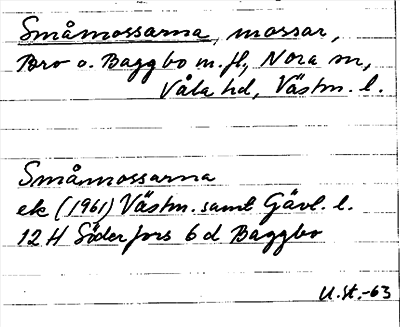 Småmossarna, mossar,
Bro o. Baggbo m.fl., Nora sn,
Våla hd, Västm. l.
Småmossarna
ek (1961) Västm. samt Gävl. l.
12 H Söderfors 6 d Baggbo
U.St.-63